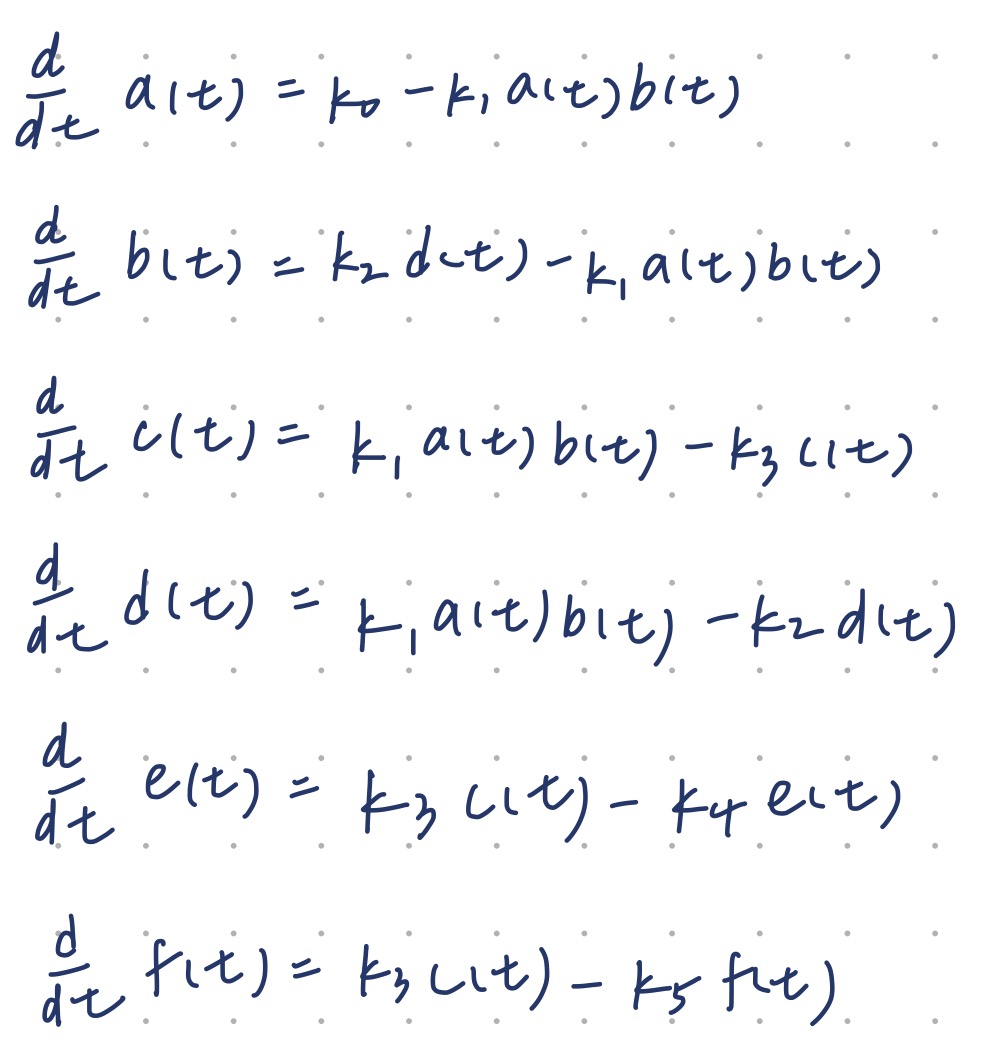 d/dt a(t) = k₀ - k₁ a(t) b(t)
d/dt b(t) = k₂ d(t) - k₁ a(t) b(t)
d/dt c(t) = k₁ a(t) b(t) - k₃ c(t)
d/dt d(t) = k₁ a(t) b(t) - k₂ d(t)
d/dt e(t) = k₃ c(t) - k₄ e(t)
d/dt f(t) = k₃ c(t) - k₅ f(t)